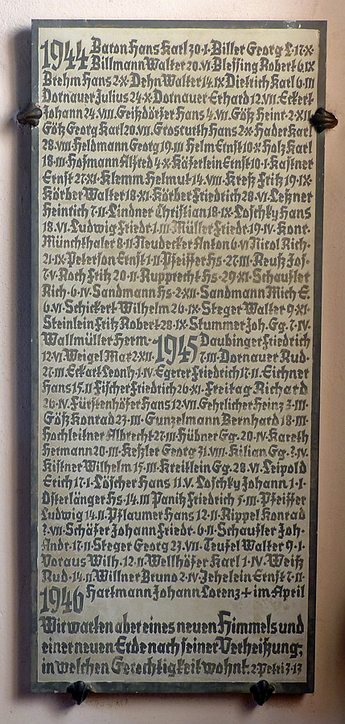 1944 Baron Hans Karl 30·I· Biller Georg L.17·X·
Billmann Walter 20·VI· Blessing Robert 6·IX
Brehm Hans 2·X· Dehn Walter 14·IX Dietrich Karl 6·III
Dornauer Julius 24·X· Dornauer Erhard 12·VII· Eckert
Johann 24·VII· Geißdörfer Hans 4·VII· Götz Heinr·2·XII
Götz Georg Karl 20·VII· Grosruth Hans 2·X· Hader Karl
28·VIII Heldmann Georg 19·III Helm Ernst 10·X· Holz Karl
18·III· Hofmann Alfred 4·X· Käferlein Ernst 10·I· Kastner
Ernst 27·XI· Klemm Helmut 14·VIII· Kreß Fritz 19·IX·
Körber Walter 18·XI· Körber Friedrich 28·VI· Leßner
Heinrich 7·II· Lindner Christian 18·IX· Loschky Hans
18·VI· Ludwig Friedr·1·III Müller Friedr·19·IV· Konr·
Münchthaler 8·II Neudecker Anton 6·VI Nicol Rich·
21·IX· Peterson Ernst 1·II Pfeiffer Hs·27·III· Reuß Jos·
7·V· Roch Fritz 20·II· Rupprecht Hs·29·XI· Schaufler
Rich·6·IV· Sandmann Hs·2·XII· Sandmann Mich E.
6·VI· Schickert Wilhelm 26·IX· Steger Walter 9·XI·
Steinlein Fritz Robert 28·IX· Stummer Joh·Gg·7·IV·
Wallmüller Herm· 1945 Daubinger Friedrich
12·IV· Weigel Max 2·XII· 7·III· Dornauer Rud·
27·III· Eckart Leonh·1·IV· Egerer Friedrich 17·II· Eichner
Hans 15·II Fischer Friedrich 26·XI· Freitag Richard
26·IV· Fürstenhöfer Hans 12·VII· Gehrlicher Heinz 3·III·
Götz Konrad 23·III· Gunzelmann Bernhard 18·III
Hochleitner Albrecht 27·III· Hübner Gg·20·IV· Kareth
Hermann 20·III· Keßler Georg 31·VIII· Kilian Gg·?·IV·
Kistner Wilhelm 15·III· Kreislein Gg·28·VI· Leipold
Erich 17·I· Löscher Hans 11·V· Loschky Johann·1·I·
Osterlänger Hs·14·III Panitz Friedrich 5·III· Pfeiffer
Ludwig 14·II· Pflaumer Hans 12·II· Rippel Konrad
?·VII· Schäfer Johann Friedr·6·II· Schaufler Joh·
Andr·17·II· Steger Georg 23·VII· Teufel Walter 9·I·
Voraus Wilh·12·II· Wellhöfer Karl 1·IV· Weiß
Rud·14·II· Willner Bruno 2·IV· Jehelein Ernst 7·II·
1946 Hartmann Johann Lorenz + im April
Wir warten aber eines neuen Himmels und
einer neuen Erde nach seiner Verheißung;
in welchen Gerechtigkeit wohnt. 2·Petri 3·13